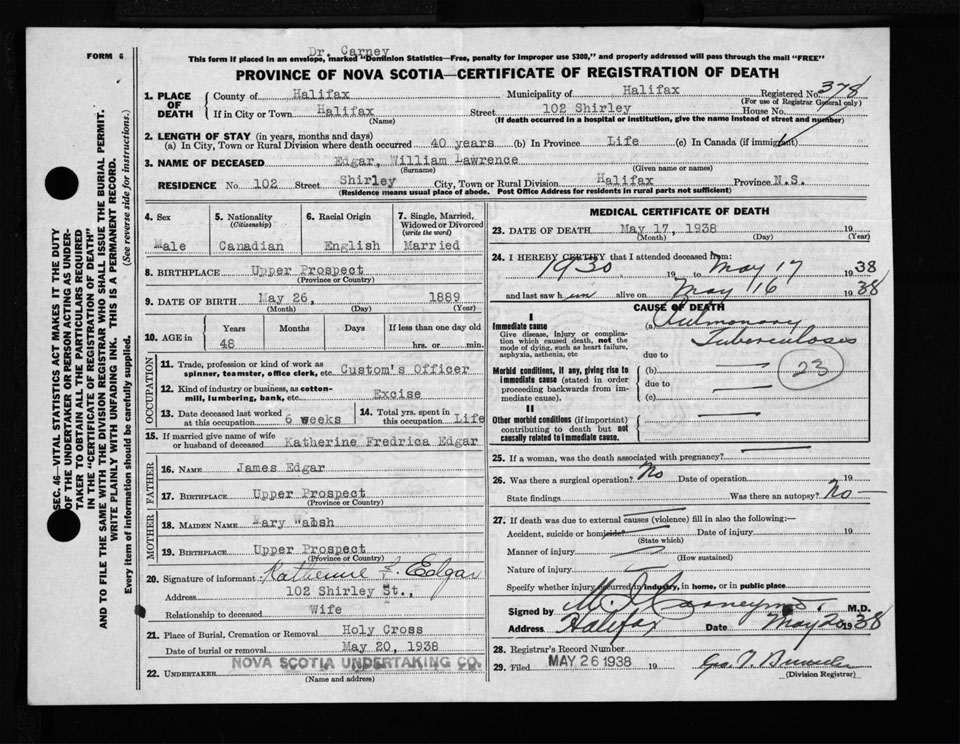 Dr. Carney
FORM 6
This form if placed in an envelope, marked "Dominion Statistics—Free, penalty for improper use $300," and properly addressed will pass through the mail "FREE"
PROVINCE OF NOVA SCOTIA—CERTIFICATE OF REGISTRATION OF DEATH
SEC. 46—VITAL STATISTICS ACT MAKES IT THE DUTY
OF THE UNDERTAKER OR PERSON ACTING AS UNDER-
TAKER TO OBTAIN ALL THE PARTICULARS REQUIRED
IN THE "CERTIFICATE OF REGISTRATION OF DEATH"
AND TO FILE THE SAME WITH THE DIVISION REGISTRAR WHO SHALL ISSUE THE BURIAL PERMIT.
WRITE PLAINLY WITH UNFADING INK. THIS IS A PERMANENT RECORD.
Every item of information should be carefully supplied. (See reverse side for instructions.)
1. PLACE OF DEATH County of Halifax Municipality of Halifax Registered No. 378
(For use of Registrar General only)
If in City or Town Halifax Street 102 Shirley House No.
(Name) (If death occurred in a hospital or institution, give the name instead of street and number)
2. LENGTH OF STAY (in years, months and days)
(a) In City, Town or Rural Division where death occurred 40 years (b) In Province Life (c) In Canada (if immigrant)
3. NAME OF DECEASED Edgar, William Lawrence
(Surname) (Given name or names)
RESIDENCE No. 102 Street Shirley City, Town or Rural Division Halifax Province N.S.
(Residence means usual place of abode. Post Office Address for residents in rural parts not sufficient)
4. Sex Male
5. Nationality (Citizenship) Canadian
6. Racial Origin English
7. Single, Married, Widowed or Divorced (write the word) Married
8. BIRTHPLACE Upper Prospect
(Province or Country)
9. DATE OF BIRTH May 26, 1889
(Month) (Day) (Year)
10. AGE in Years 48 Months Days If less than one day old hrs. or min.
OCCUPATION
11. Trade, profession or kind of work as spinner, teamster, office clerk, etc. Custom's Officer
12. Kind of industry or business, as cotton-mill, lumbering, bank, etc. Excise
13. Date deceased last worked at this occupation 6 weeks
14. Total yrs. spent in this occupation Life
15. If married give name of wife or husband of deceased Katherine Fredrica Edgar
FATHER
16. NAME James Edgar
17. BIRTHPLACE Upper Prospect
(Province or Country)
MOTHER
18. MAIDEN NAME Mary Walsh
19. BIRTHPLACE Upper Prospect
(Province or Country)
20. Signature of informant Katherine F. Edgar
Address 102 Shirley St.,
Relationship to deceased Wife
21. Place of Burial, Cremation or Removal Holy Cross
Date of burial or removal May 20, 1938
22. UNDERTAKER NOVA SCOTIA UNDERTAKING CO.
(Name and address)
MEDICAL CERTIFICATE OF DEATH
23. DATE OF DEATH May 17, 1938 19
(Month) (Day) (Year)
24. I HEREBY CERTIFY that I attended deceased from:
1930, 19 to May 17 1938
and last saw him alive on May 16 1938
CAUSE OF DEATH
I
Immediate cause
Give disease, injury or complication which caused death, not the mode of dying, such as heart failure, asphyxia, asthenia, etc
(a) Pulmonary
Tuberculosis
due to
Morbid conditions, if any, giving rise to immediate cause (stated in order proceeding backwards from immediate cause).
(b)
due to
(c)
23
II
Other morbid conditions (if important) contributing to death but not causally related to immediate cause.
25. If a woman, was the death associated with pregnancy?
26. Was there a surgical operation? No Date of operation 19
State findings Was there an autopsy? No
27. If death was due to external causes (violence) fill in also the following:—
Accident, suicide or homicide? Date of injury 19
(State which)
Manner of injury
(How sustained)
Nature of injury
Specify whether injury occurred in industry, in home, or in public place
Signed by M. J. Carney M.D.
Address Halifax Date May 20 1938
28. Registrar's Record Number
29. Filed MAY 26 1938 19
(Division Registrar)